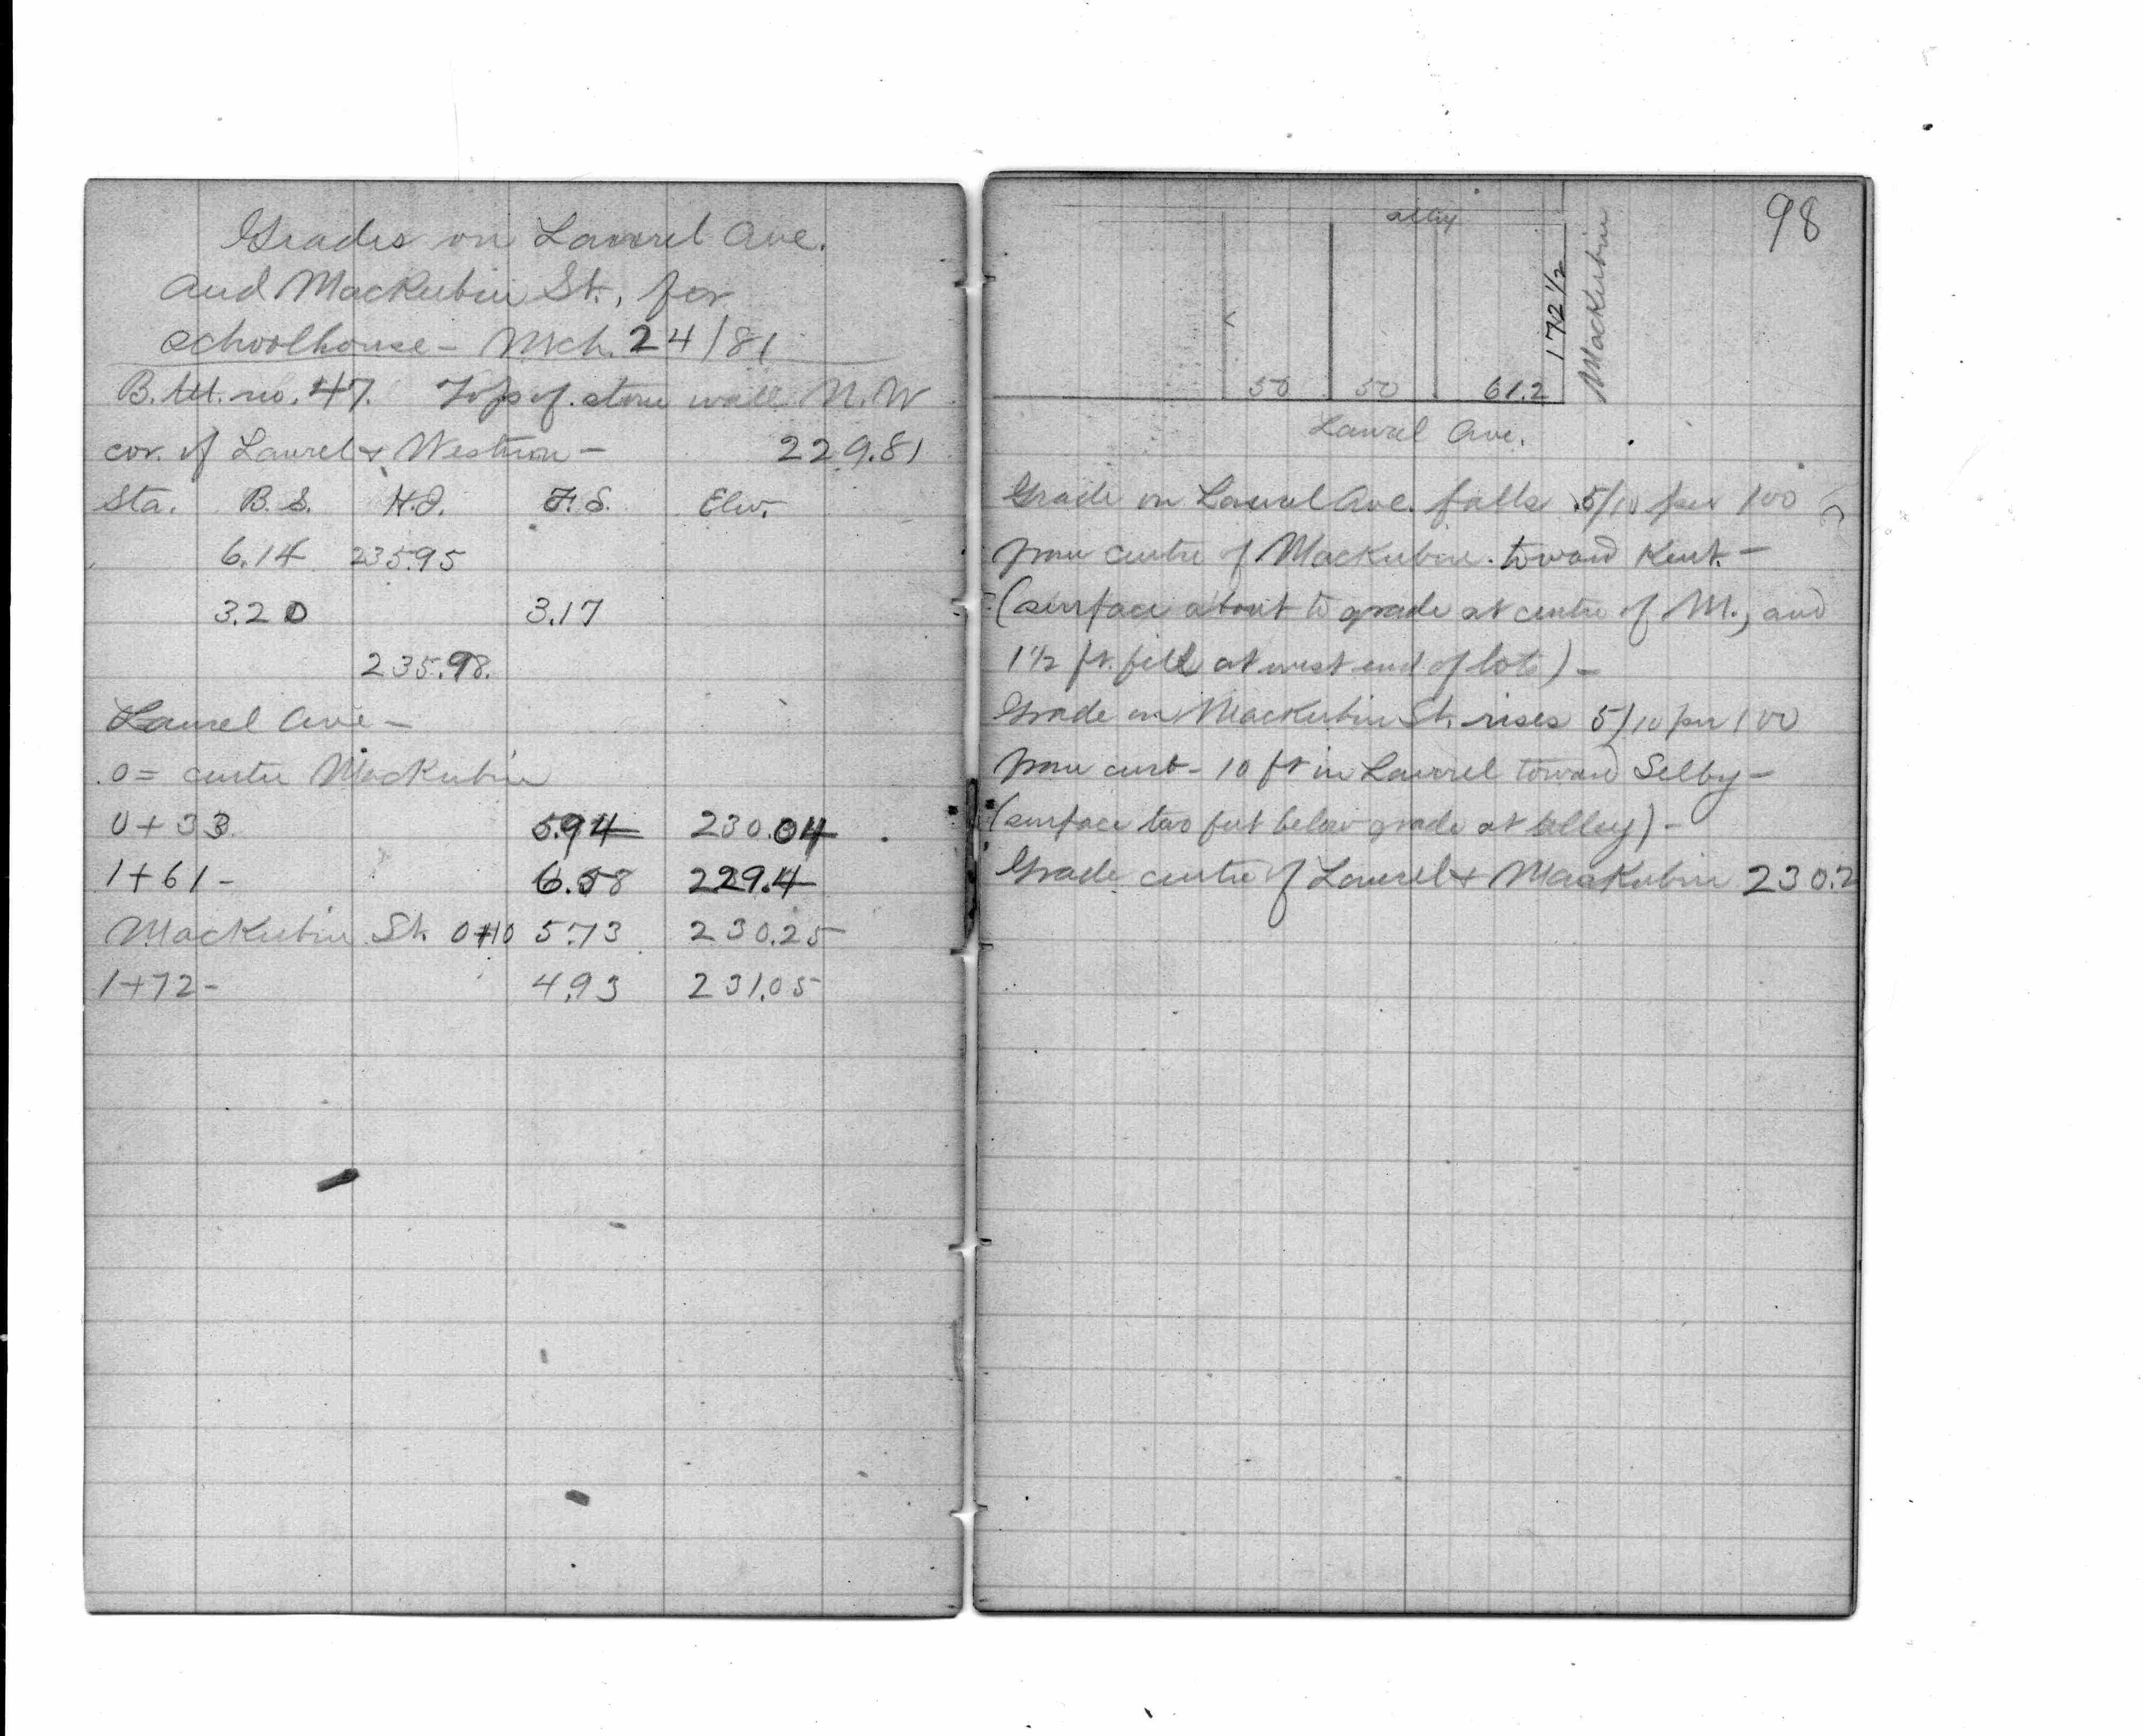 Grades on Laurel Ave.
and Mackubin St., for
schoolhouse - Mch. 24/81
B.M. no. 47. Top of stone wall N.W
cor. of Laurel & Western - 229.81
Sta. B.S. H.I. F.S. Elev.
6.14 235.95
3.20 3.17
235.98.
Laurel Ave -
0 = centre Mackubin
0+33 5.94 230.04
1+61- 6.58 229.4
Mackubin St. 0+10 5.73 230.25
1+72- 4.93 231.05
98
alley
172 1/2
Mackubin
50 50 61.2
Laurel Ave.
Grade on Laurel Ave. falls 5/10 per 100
from centre of Mackubin toward Kent. -
(surface about to grade at centre of M., and
1 1/2 ft. fill at west end of lots) -
Grade on Mackubin St. rises 5/10 per 100
from curb - 10 ft in Laurel toward Selby -
(surface two feet below grade at alley) -
Grade centre of Laurel & Mackubin 230.2